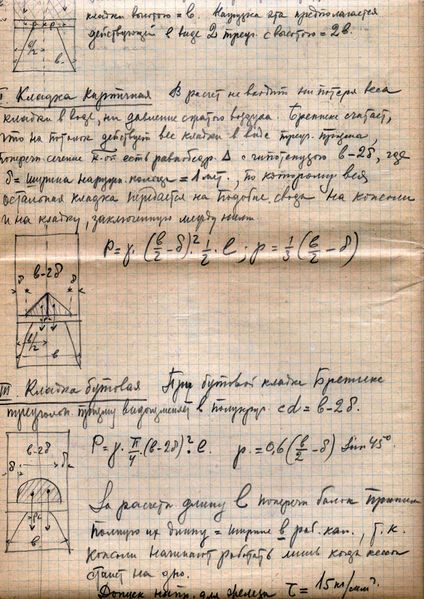 кладки высотою = b. Нагрузка эта предполагается
действующей в виде 2 треуг. с высотою = 2b.
b/2
b
II Кладка кирпичная В расчет не входит ни потеря веса
кладки в воде, ни давление сжатого воздуха. Бреннеке считает,
что на потолок действует вес кладки в виде треуг. призмы,
попереч. сечение к-ой есть равнобедр. Δ с гипотенузою b-2δ, где
δ = ширина наружн. = 1 мет., по которому вся
остальная кладка передается на подобие свода на консоли
и на кладку, заключенную между ними.
P = γ·(b/2 - δ)²·1/2·l; p = 1/3 (b/2 - δ)
b-2δ
δ
δ
b/2
b
III Кладка бутовая При бутовой кладке Бреннеке
треугольн. призму видоизменяет в полукруг. cd = b-2δ.
P = γ·π/4·(b-2δ)²·l. p = 0,6(b/2 - δ) Sin 45°
b-2δ
δ
δ
b
За расчетн длину l попереч балок
полную их длину = ширине b раб. кам., т. к.
консоли начинают работать лишь когда кессон
станет на дно.
Допуск напр. для железа τ = 15 кг/мм².